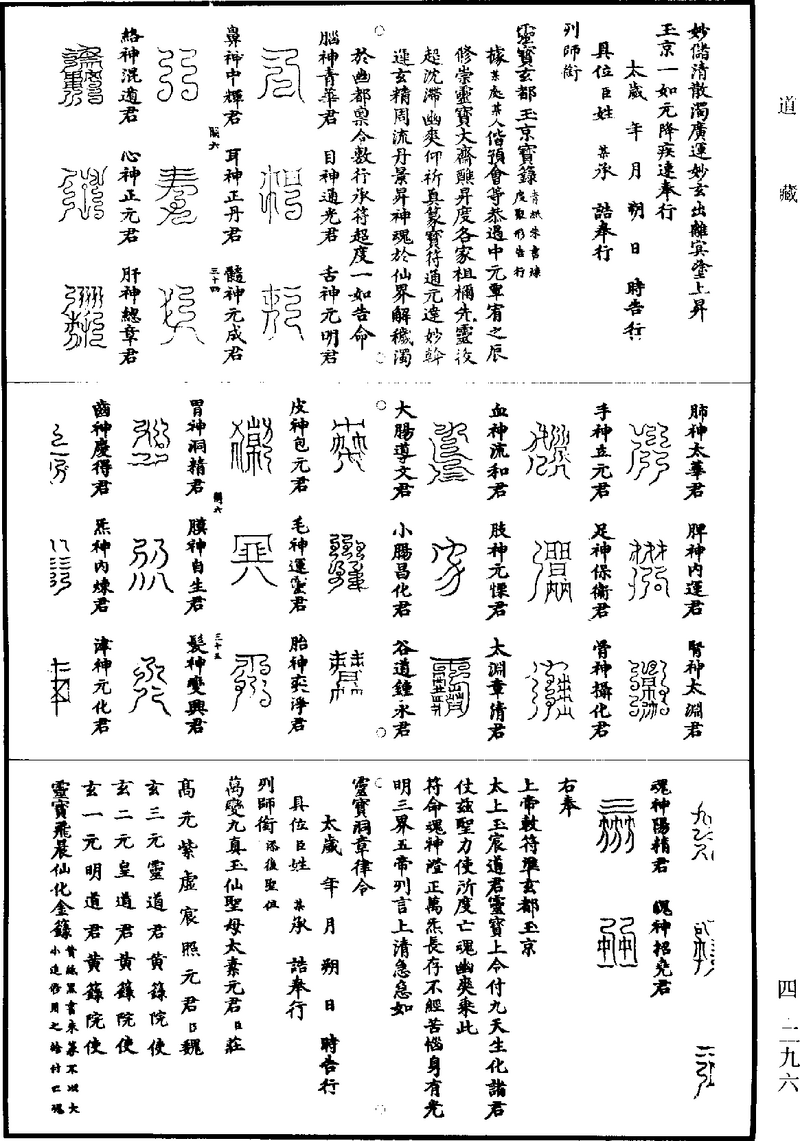 道藏
四·二九六
妙儲清散濁廣運妙玄出離冥塗上昇
玉京一如元降疾速奉行
太歲年月朔日時告行
具位臣姓某承誥奉行
列師銜
靈寶玄都玉京寶籙
據某處某人偕預會等恭遇中元覃宥之辰
修崇靈寶大齋醮昇度各家祖禰先靈後
起沈滯幽爽仰祈真篆寶符通元達妙斡
運玄精周流丹景昇神魂於仙界解穢濁
於幽都稟合敷行承符超度一如告命
腦神青華君 目神通光君 舌神元明君
鼻神中輝君 耳神正丹君 髓神元成君
三十四
絡神混道君 心神正元君 肝神總章君
肺神太華君 脾神內運君 腎神太淵君
手神立元君 足神保衛君 骨神攝化君
血神流和君 肢神元慄君 太淵章清君
大腸導文君 小腸昌化君 谷道鍾永君
皮神包元君 毛神運靈君 胎神奕淨君
胃神洞精君 膜神自生君 髮神變興君
三十五
齒神慶得君 炁神內煉君 津神元化君
魂神陽精君 魄神招堯君
右奉
上帝敕符準玄都玉京
太上玉宸道君靈寶上令付九天生化諸君
仗茲聖力使所度亡魂幽爽乘此
符命魂神澄正萬炁長存不經苦惱身有光
明三界五帝列言上清急急如
靈寶洞章律令
太歲年月朔日時告行
具位臣姓某承誥奉行
列師銜
萬變九真玉仙聖母太素元君臣莊
高元紫虛宸照元君臣魏
玄三元靈道君黃籙院使
玄二元皇道君黃籙院使
玄一元明道君黃籙院使
靈寶飛晨仙化金籙